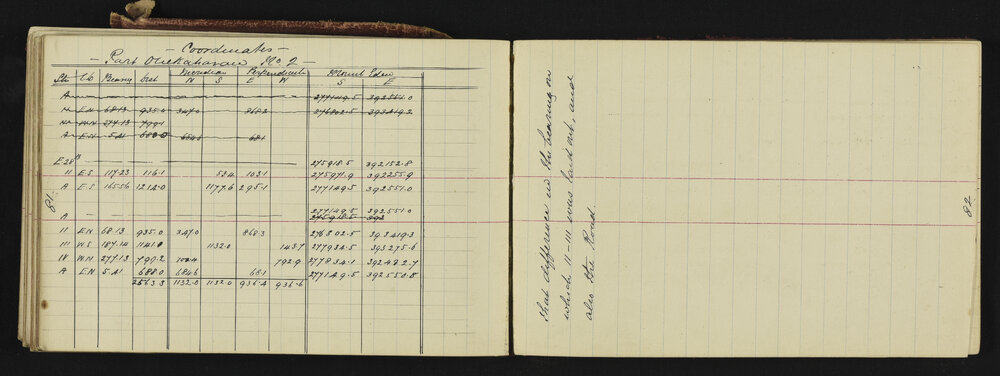 - Coordinates -
- Part No 2 -
Meridian Perpendicular Mount Eden
Stn Cb Bearing Dist N S E W S E
A 277149.5 392551.0
II EN 68.13 935.0 347.0 868.3 276802.5 393419.3
WN 277.13 799.1
A EN 5.41 688.0 684.6 68.1
E28 275918.5 392152.8
II E.S 117.23 116.1 53.4 103.1 275971.9 392255.9
A E.S 165.56 1214.0 1177.6 295.1 277149.5 392551.0
277149.5 392551.0
A 275918.5 392
II EN 68.13 935.0 347.0 868.3 276802.5 393419.3
III WS 187.14 1141.0 1132.0 143.7 277934.5 393275.6
IV WN 277.13 799.2 100.4 792.9 277834.1 392482.7
A EN 5.41 688.0 684.6 68.1 277149.5 392550.8
3563.3 1132.0 1132.0 936.4 936.6
81
that difference in the bearing on
which II-III was laid out, and
also the Road.
82